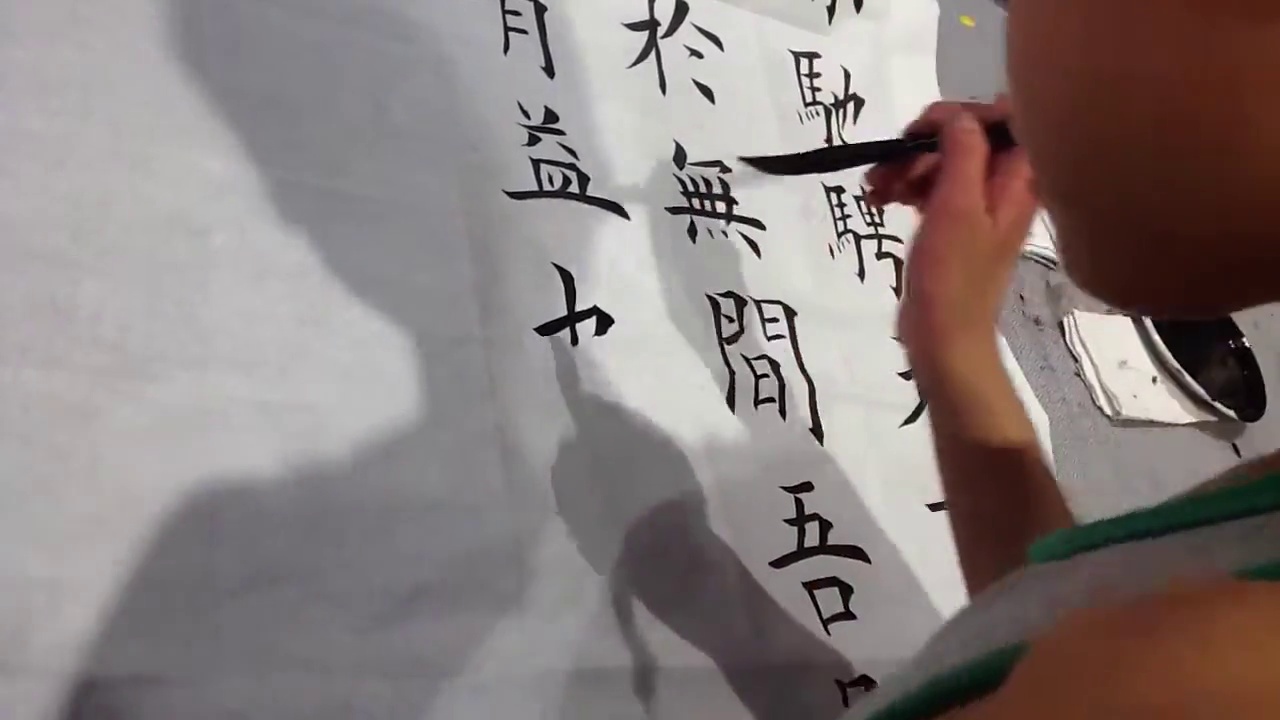 馳騁
於無間吾
有益也